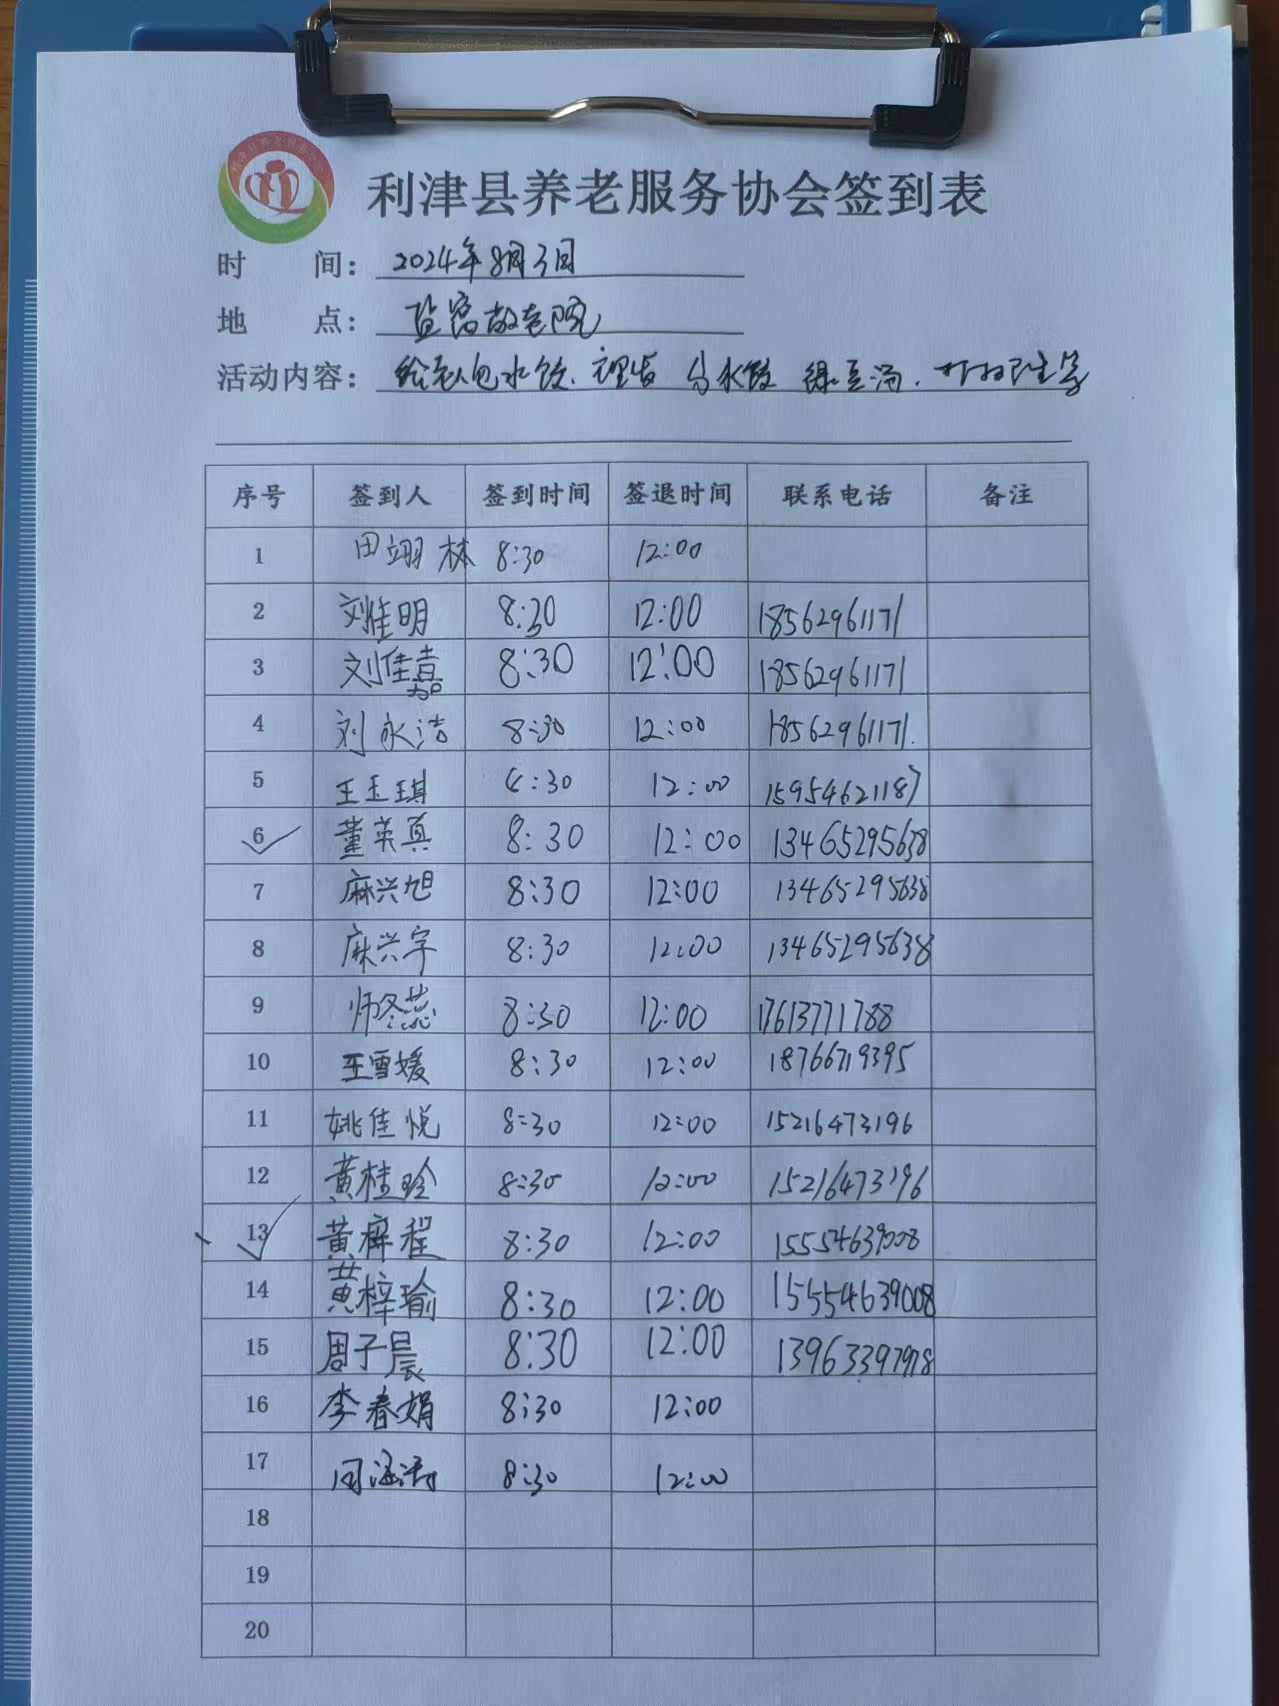 利津县养老服务协会签到表
时 间： 2024年8月3日
地 点： 盐窝敬老院
活动内容： 给老人包水饺、理发 包水饺 绿豆汤、打扫卫生等
序号 签到人 签到时间 签退时间 联系电话 备注
1 田翊林 8:30 12:00
2 刘佳明 8:30 12:00 18562961171
3 刘佳嘉 8:30 12:00 18562961171
4 刘永洁 8:30 12:00 18562961171.
5 王玉琪 8:30 12:00 15954621187
6 董英真 8:30 12:00 13465295638
7 麻兴旭 8:30 12:00 13465295638
8 麻兴宇 8:30 12:00 13465295638
9 师冬蕊 8:30 12:00 17613771788
10 王雪媛 8:30 12:00 18766719395
11 姚佳悦 8:30 12:00 15216473196
12 黄桂玲 8:30 12:00 15216473196
13 黄梓程 8:30 12:00 15554639008
14 黄梓瑜 8:30 12:00 15554639008
15 周子晨 8:30 12:00 13963397978
16 李春娟 8:30 12:00
17 周涵 8:30 12:00
18
19
20